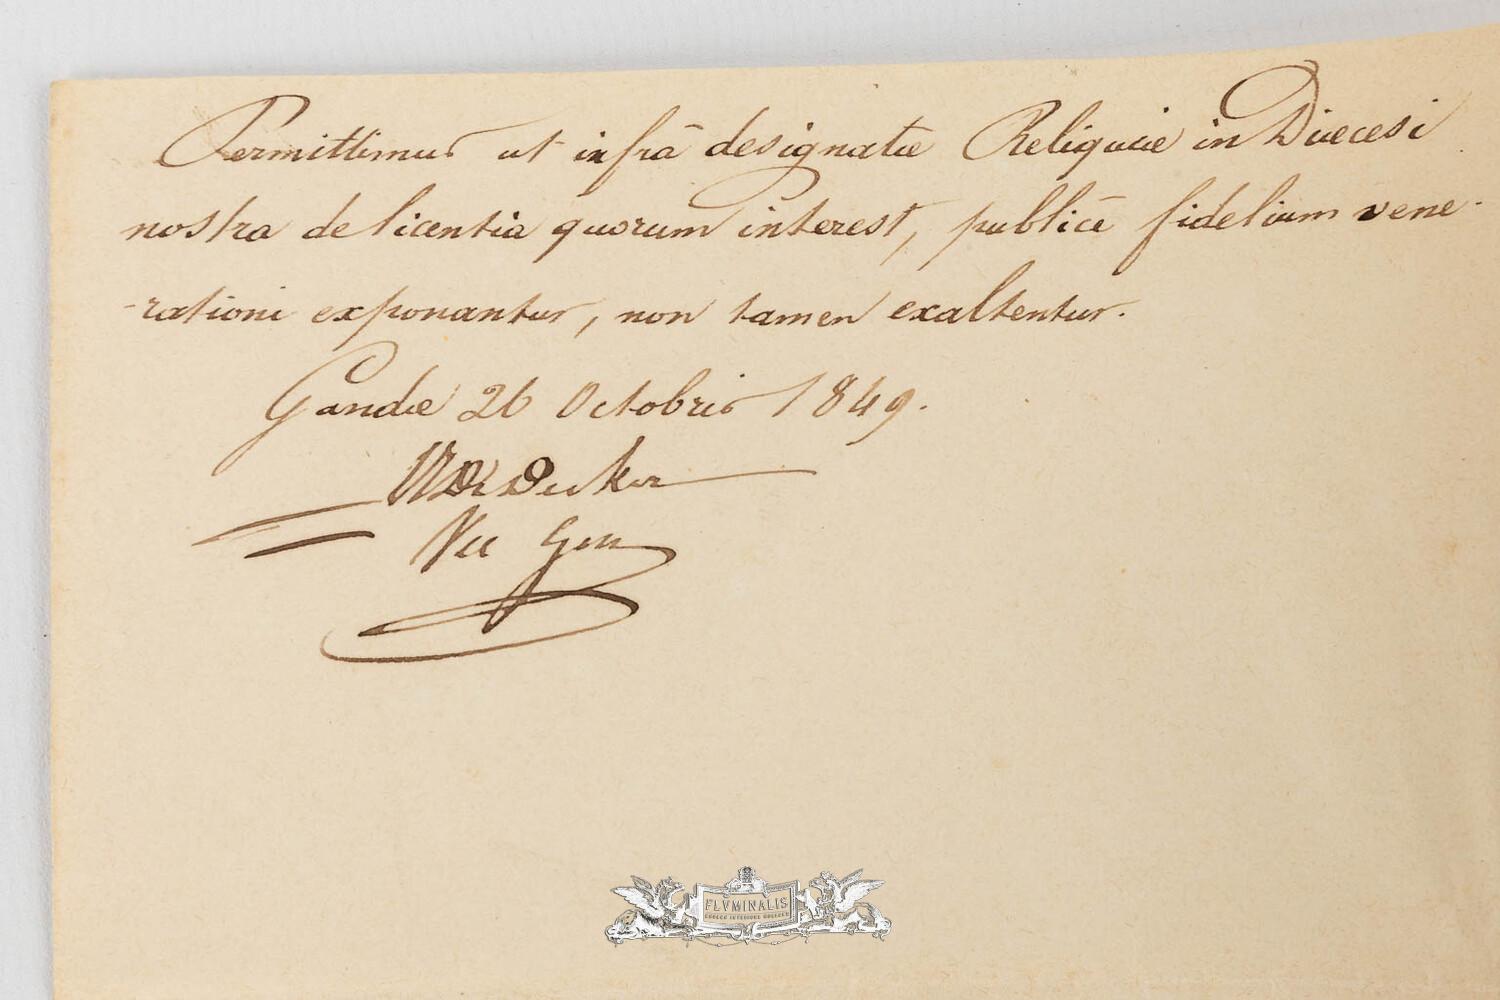 Permittimus ut infrà designatæ Reliquiæ in Diœcesi
nostra de licentia quorum interest, publicè fidelium vene-
-rationi exponantur, non tamen exaltentur.
Gandæ 26 Octobris 1849.
De Decker
Vic Gen
FLVMINALIS